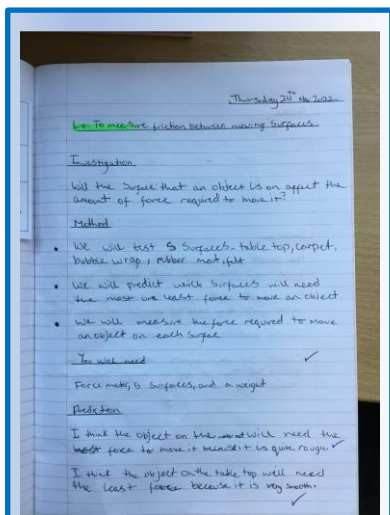 Thursday 24th 2022
L.O: To measure friction between moving surfaces.
Investigation
Will the surface that an object is on affect the
amount of force required to move it?
Method
• We will test 5 surfaces - table top, carpet,
bubble wrap, rubber mat, felt
• We will predict which surfaces will need
the most and least force to move an object
• We will measure the force required to move
an object on each surface
You will need
Force meter, 5 surfaces, and a weight
Prediction
I think the object on the will need the
most force to move it because it is quite rough.
I think the object on the table top will need
the least force because it is very smooth.